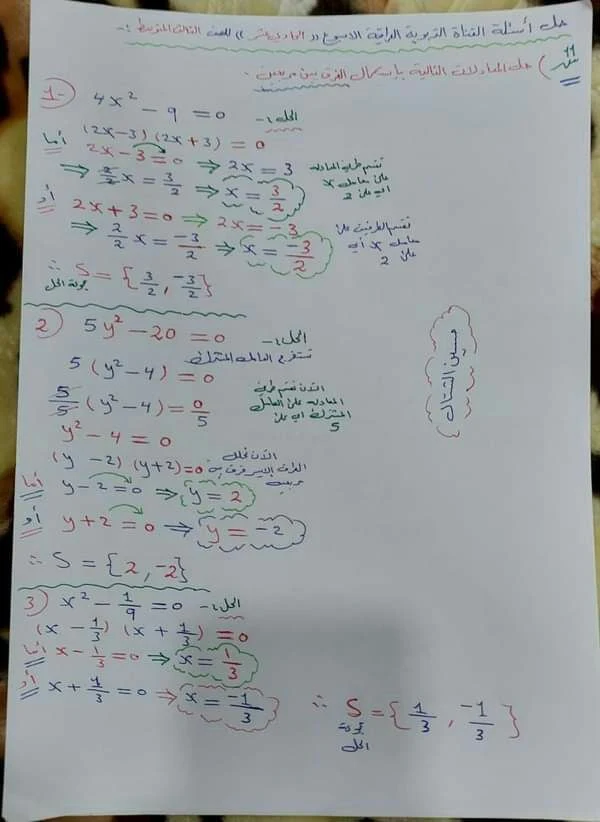 حل أسئلة القناة التربوية العراقية الاسبوع (( الحادي عشر )) للصف الثالث المتوسط :-
س11) حل المعادلات التالية باستعمال الفرق بين مربعين .
1- 4x² - 9 = 0 الحل :-
(2x-3) (2x+3) = 0
أما 2x - 3 = 0 ⇒ 2x = 3 نقسم طرفي المعادلة
⇒ 2/2 x = 3/2 ⇒ x = 3/2 على معامل x
أي على 2
أو 2x + 3 = 0 ⇒ 2x = -3 نقسم الطرفين على
⇒ 2/2 x = -3/2 ⇒ x = -3/2 معامل x أي
على 2
∴ S = {3/2 , -3/2}
مجموعة الحل
2) 5y² - 20 = 0 الحل :-
نستخرج العامل المشترك
5 (y² - 4) = 0
الآن نقسم طرفي
5/5 (y² - 4) = 0/5 المعادلة على العامل
المشترك أي على
5
y² - 4 = 0
(y - 2) (y + 2) = 0 الآن نحلل
الطرف الايسر فرق بين
مربعين
أما y - 2 = 0 ⇒ y = 2
أو y + 2 = 0 ⇒ y = -2
∴ S = {2 , -2}
3) x² - 1/9 = 0 الحل :-
(x - 1/3) (x + 1/3) = 0
أما x - 1/3 = 0 ⇒ x = 1/3
أو x + 1/3 = 0 ⇒ x = -1/3
∴ S = {1/3 , -1/3}
مجموعة
الحل